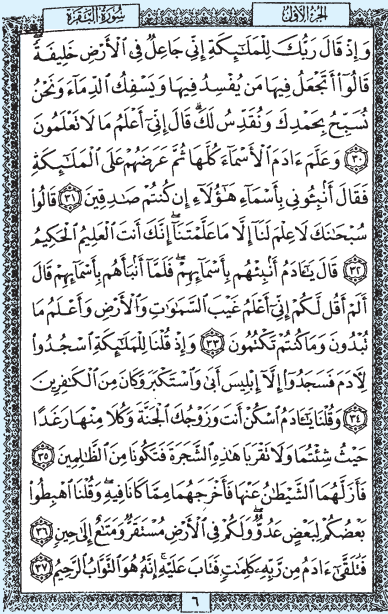 الجزء الأول
سورة البقرة
وَإِذْ قَالَ رَبُّكَ لِلْمَلَٰٓئِكَةِ إِنِّى جَاعِلٌ فِى ٱلْأَرْضِ خَلِيفَةً
قَالُوٓا۟ أَتَجْعَلُ فِيهَا مَن يُفْسِدُ فِيهَا وَيَسْفِكُ ٱلدِّمَآءَ وَنَحْنُ
نُسَبِّحُ بِحَمْدِكَ وَنُقَدِّسُ لَكَ ۖ قَالَ إِنِّىٓ أَعْلَمُ مَا لَا تَعْلَمُونَ
٣٠ وَعَلَّمَ ءَادَمَ ٱلْأَسْمَآءَ كُلَّهَا ثُمَّ عَرَضَهُمْ عَلَى ٱلْمَلَٰٓئِكَةِ
فَقَالَ أَنۢبِـُٔونِى بِأَسْمَآءِ هَٰٓؤُلَآءِ إِن كُنتُمْ صَٰدِقِينَ ٣١ قَالُوا۟
سُبْحَٰنَكَ لَا عِلْمَ لَنَآ إِلَّا مَا عَلَّمْتَنَآ ۖ إِنَّكَ أَنتَ ٱلْعَلِيمُ ٱلْحَكِيمُ
٣٢ قَالَ يَٰٓـَٔادَمُ أَنۢبِئْهُم بِأَسْمَآئِهِمْ ۖ فَلَمَّآ أَنۢبَأَهُم بِأَسْمَآئِهِمْ قَالَ
أَلَمْ أَقُل لَّكُمْ إِنِّىٓ أَعْلَمُ غَيْبَ ٱلسَّمَٰوَٰتِ وَٱلْأَرْضِ وَأَعْلَمُ مَا
تُبْدُونَ وَمَا كُنتُمْ تَكْتُمُونَ ٣٣ وَإِذْ قُلْنَا لِلْمَلَٰٓئِكَةِ ٱسْجُدُوا۟
لِءَادَمَ فَسَجَدُوٓا۟ إِلَّآ إِبْلِيسَ أَبَىٰ وَٱسْتَكْبَرَ وَكَانَ مِنَ ٱلْكَٰفِرِينَ
٣٤ وَقُلْنَا يَٰٓـَٔادَمُ ٱسْكُنْ أَنتَ وَزَوْجُكَ ٱلْجَنَّةَ وَكُلَا مِنْهَا رَغَدًا
حَيْثُ شِئْتُمَا وَلَا تَقْرَبَا هَٰذِهِ ٱلشَّجَرَةَ فَتَكُونَا مِنَ ٱلظَّٰلِمِينَ ٣٥
فَأَزَلَّهُمَا ٱلشَّيْطَٰنُ عَنْهَا فَأَخْرَجَهُمَا مِمَّا كَانَا فِيهِ ۖ وَقُلْنَا ٱهْبِطُوا۟
بَعْضُكُمْ لِبَعْضٍ عَدُوٌّ ۖ وَلَكُمْ فِى ٱلْأَرْضِ مُسْتَقَرٌّ وَمَتَٰعٌ إِلَىٰ حِينٍ ٣٦
فَتَلَقَّىٰٓ ءَادَمُ مِن رَّبِّهِۦ كَلِمَٰتٍ فَتَابَ عَلَيْهِ ۚ إِنَّهُۥ هُوَ ٱلتَّوَّابُ ٱلرَّحِيمُ ٣٧
٦